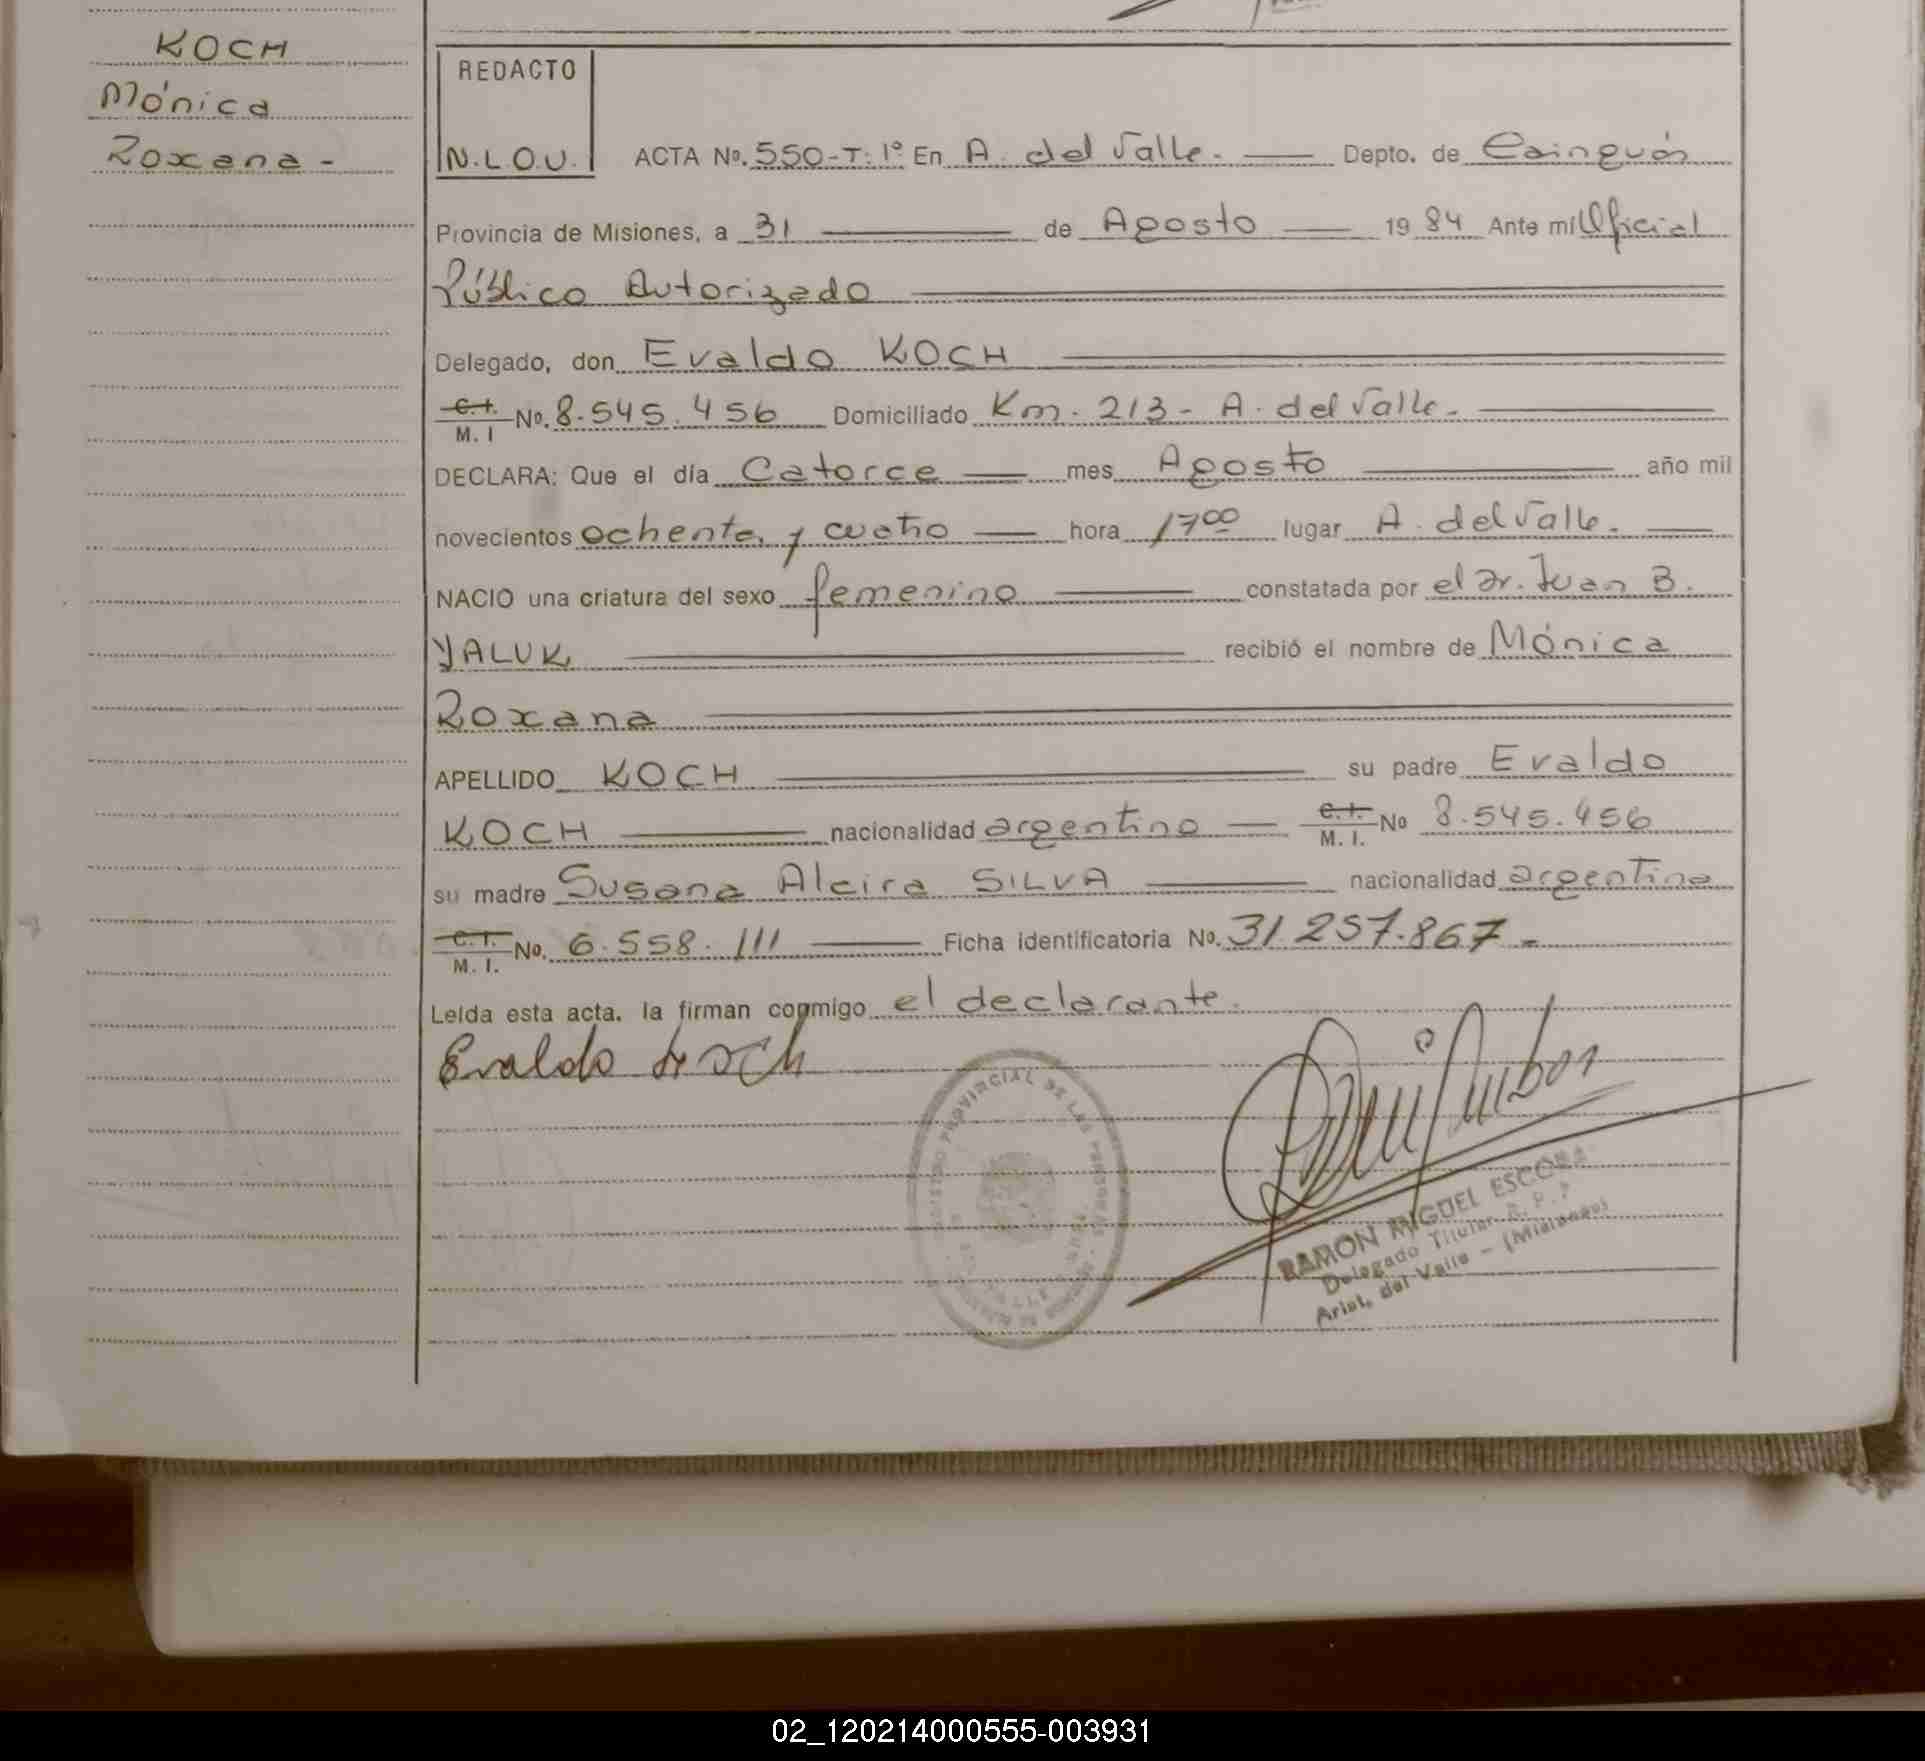 KOCH
Mónica
Roxana -
REDACTO
N.L.O.U.
ACTA No. 550-T: 1° En A. del Valle. Depto. de Cainguás
Provincia de Misiones, a 31 de Agosto 1984 Ante mi Oficial
Público Autorizado
Delegado, don Evaldo KOCH
C.I. M. I No. 8.545.456 Domiciliado Km. 213 - A. del Valle.
DECLARA: Que el día Catorce mes Agosto año mil
novecientos ochenta y cuatro hora 17 00 lugar A. del Valle.
NACIO una criatura del sexo femenino constatada por el Dr. Juan B.
YALUK recibió el nombre de Mónica
Roxana
APELLIDO KOCH su padre Evaldo
KOCH nacionalidad argentino C.I. M. I. No 8.545.456
su madre Susana Alcira SILVA nacionalidad argentina
C.I. M. I. No. 6.558.111 Ficha identificatoria No. 31.257.867 -
Leída esta acta, la firman conmigo el declarante.
Evaldo Koch
REGISTRO PROVINCIAL DE LAS PERSONAS
RAMON MIGUEL ESCOBAR
Delegado Titular R. P. P
Arist. del Valle - (Misiones)
02_120214000555-003931